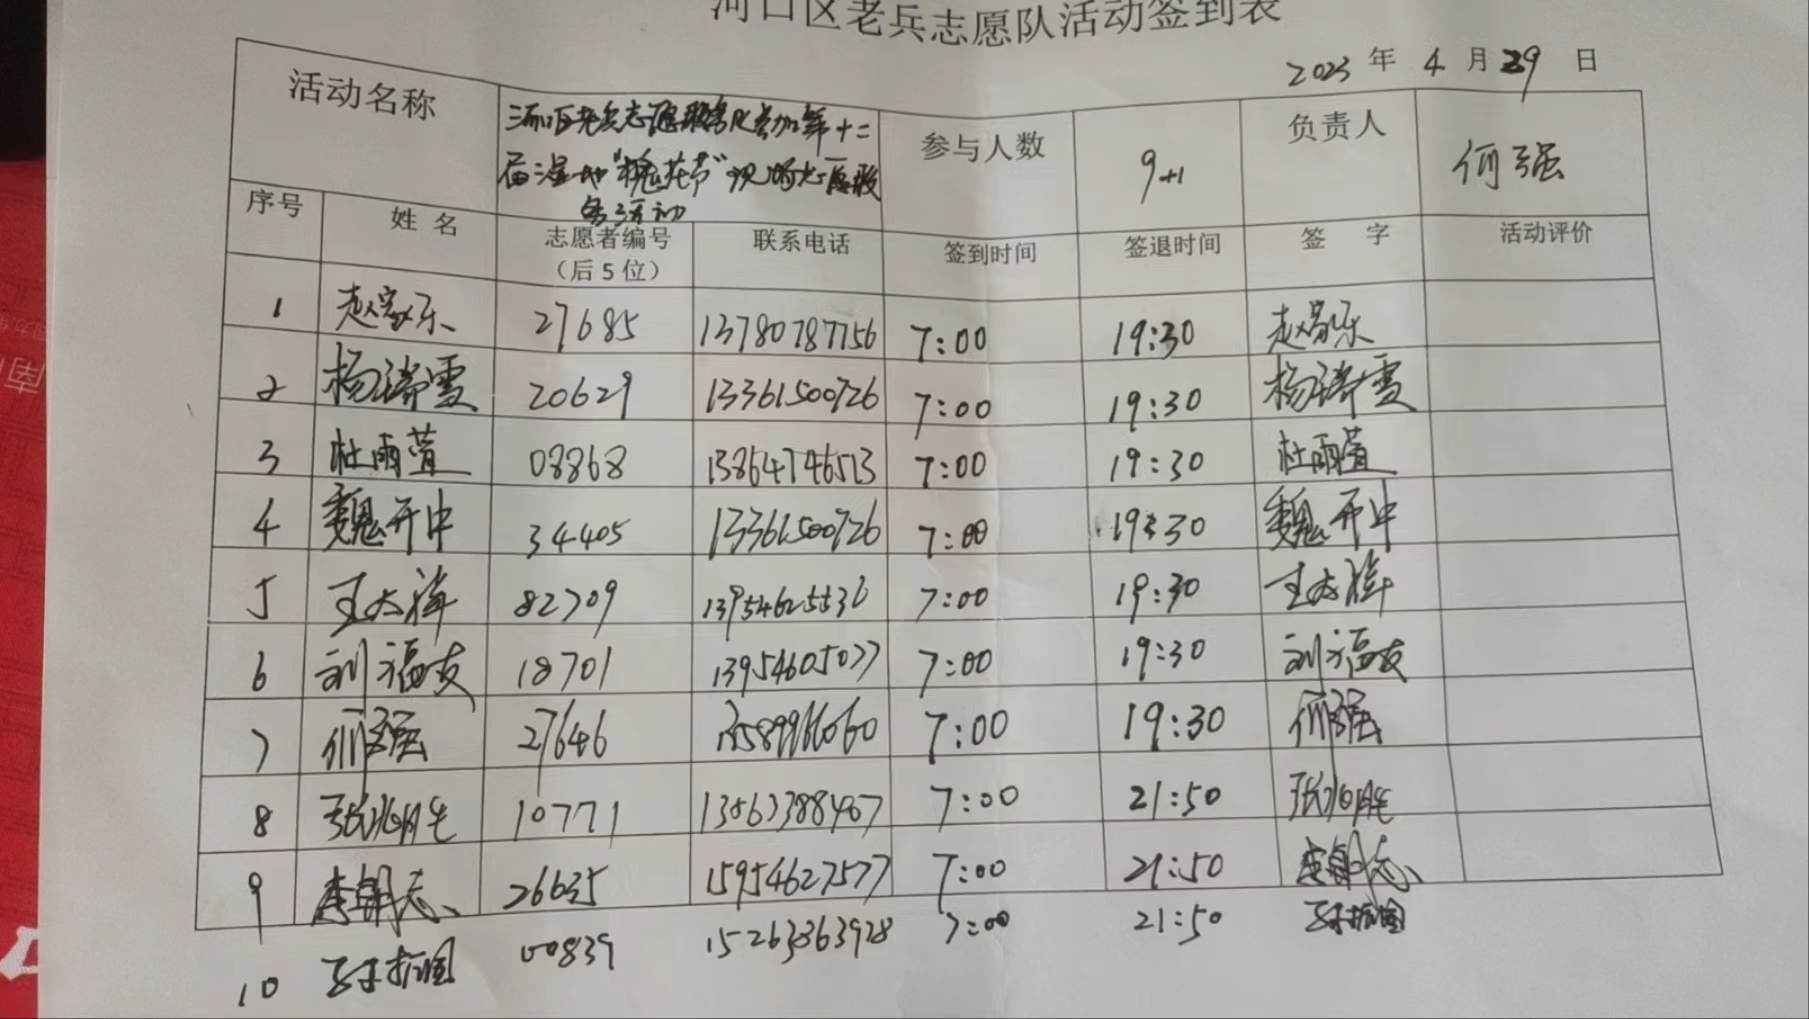 河口区老兵志愿队活动签到表
2023 年 4 月 29 日
活动名称 河口区老兵志愿服务队参加第十二 参与人数 9+1 负责人 何强
届湿地"槐花节"现场志愿服
务活动
序号 姓名 志愿者编号 联系电话 签到时间 签退时间 签字 活动评价
（后5位）
1 赵家乐 27685 13780787756 7:00 19:30 赵家乐
2 杨瑞雪 20629 13361500726 7:00 19:30 杨瑞雪
3 杜雨萱 08868 13864746513 7:00 19:30 杜雨萱
4 魏开中 34405 13361500726 7:00 19:30 魏开中
5 王太祥 82709 13954625536 7:00 19:30 王太祥
6 刘福友 18701 13954605077 7:00 19:30 刘福友
7 何强 27646 13589966060 7:00 19:30 何强
8 张兆胜 10771 13563388467 7:00 21:50 张兆胜
9 李朝志 26635 15954627577 7:00 21:50 李朝志
10 00839 15263863928 7:00 21:50